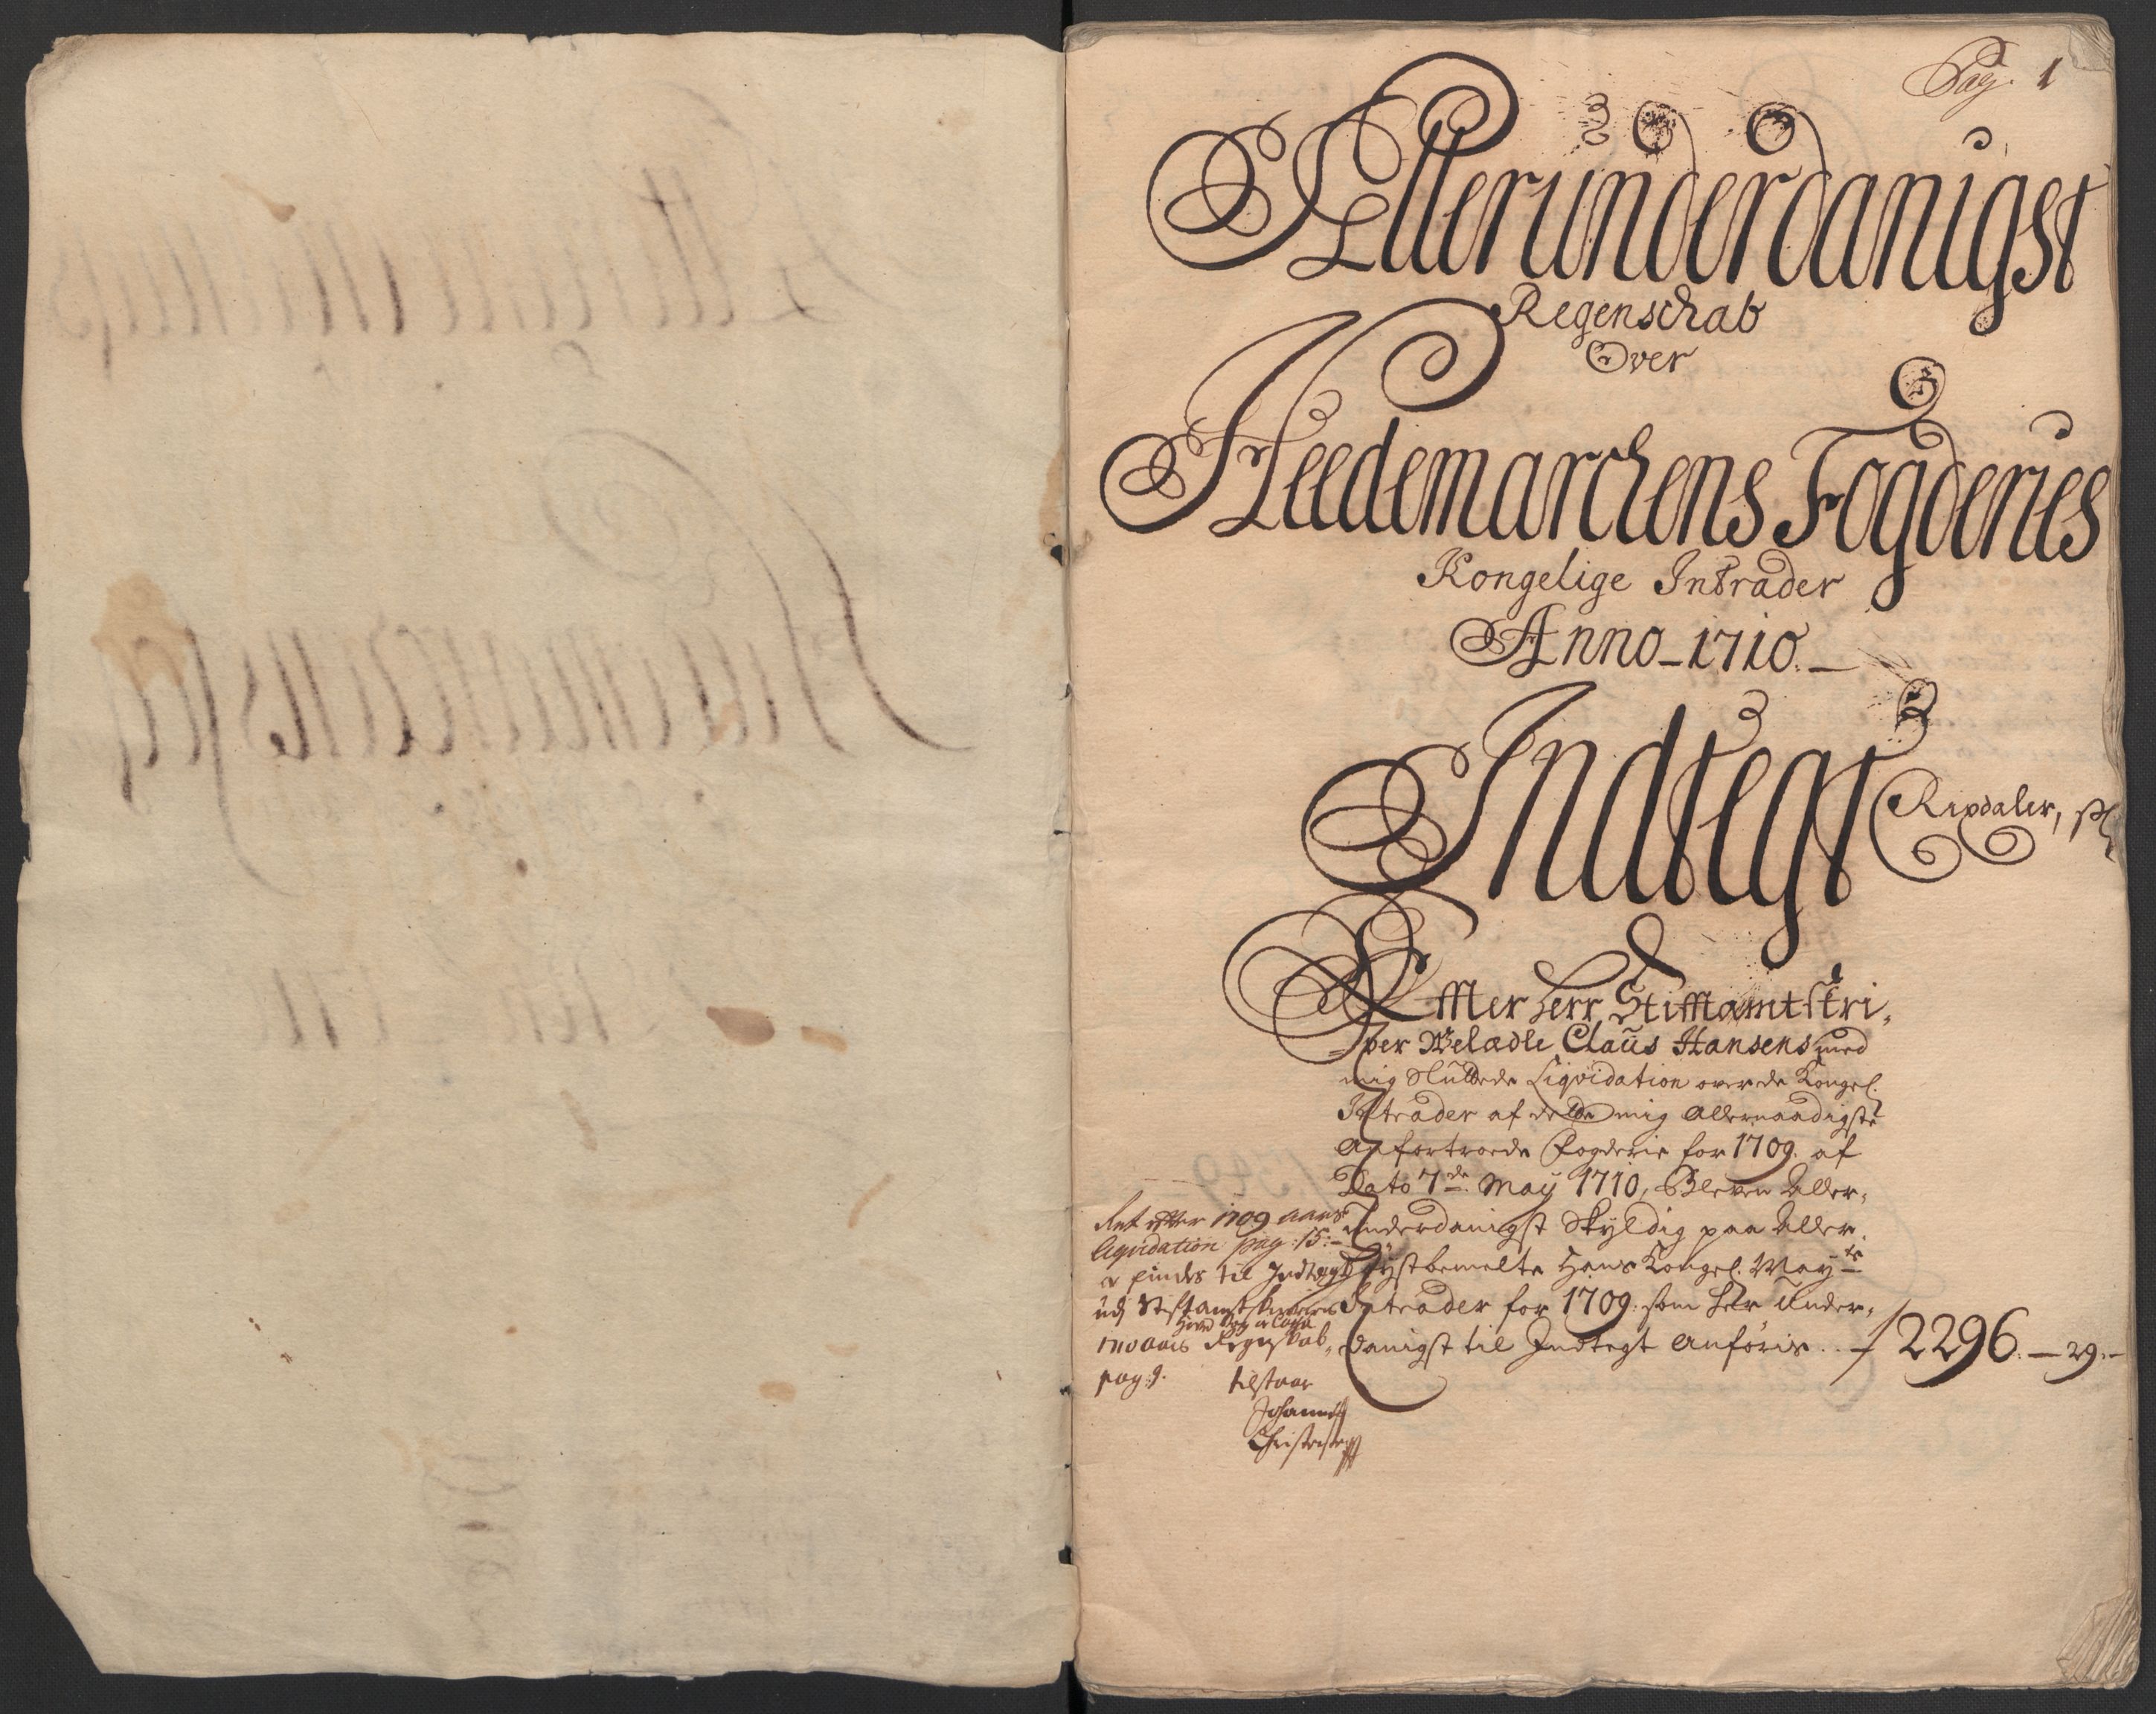 Pag. 1
Allerunderdanigst
Regenschab
Over
Heedemarchens Fogderies
Kongelige Intrader
Anno-1710.-
Indtegt
Rixdaler, ß
Effter Herr Stifftamtskri,
=ver Welædle Claus Hansens med
mig Sluttede Liqvidation over de Kongel.
Intrader af dette mig Allernaadigste
Anfortroede Fogderie for 1709. af
Dato 7de May 1710, Bleven Aller,
underdanigst Skyldig paa Aller,
høystbemelte Hans Kongel. Mayts
Intrader for 1709. som her Under,
danigst til Indtegt Anføris .. 2296.-29.-
Ret efter 1709 aars
liqvidation pag: 15:-
er findes til Indtegt
udj Stiftamtskriverens
1710 aars Regenskab,
pag: 9.
tilstaar
Johannes